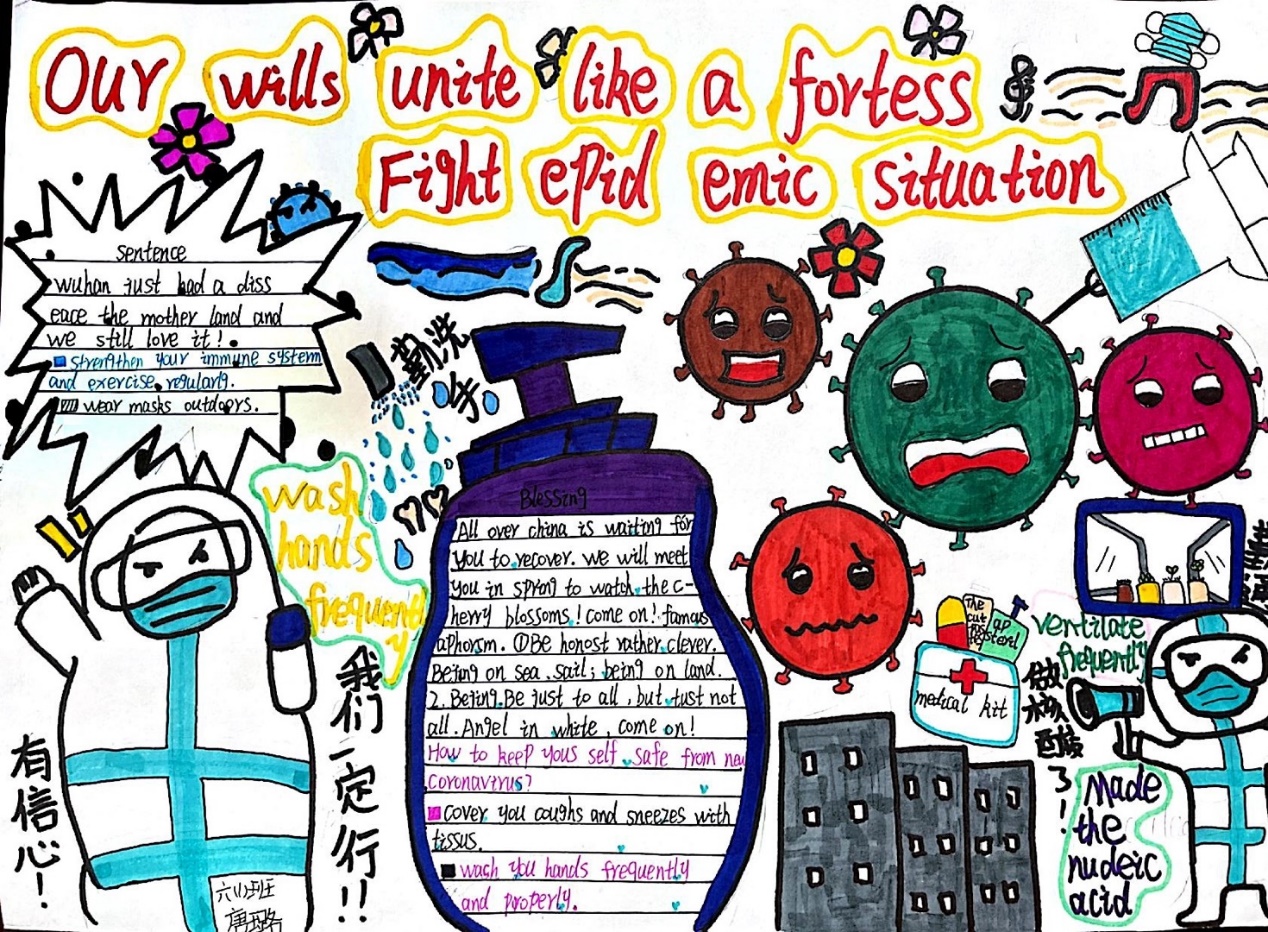 Our wills unite like a fortess
Fight epid emic situation
sentence
wuhan just had a diss
eace the mother land and
we still love it!.
strengthen your immune system
and exercise regularg.
wear masks outdoors.
勤洗
手
wash
hands
frequently
有信心!
我们一定行!!
六(1)班
Blessing
All over china is waiting for
you to recover. we will meet
you in spring to watch the c-
herry blossoms! come on! famous
aphorsm. ①Be honost rather clever.
Being on sea sail; being on land.
2. Being. Be just to all, but tust not
all. Angel in white, come on!
How to keep yous self safe from new
coronavirus?
cover you coughs and sneezes with
tissus.
wash you hands frequently
and properly.
The
cut
medical kit
ventilate
frequently
做核酸
了!
Made
the
nudeic
acid